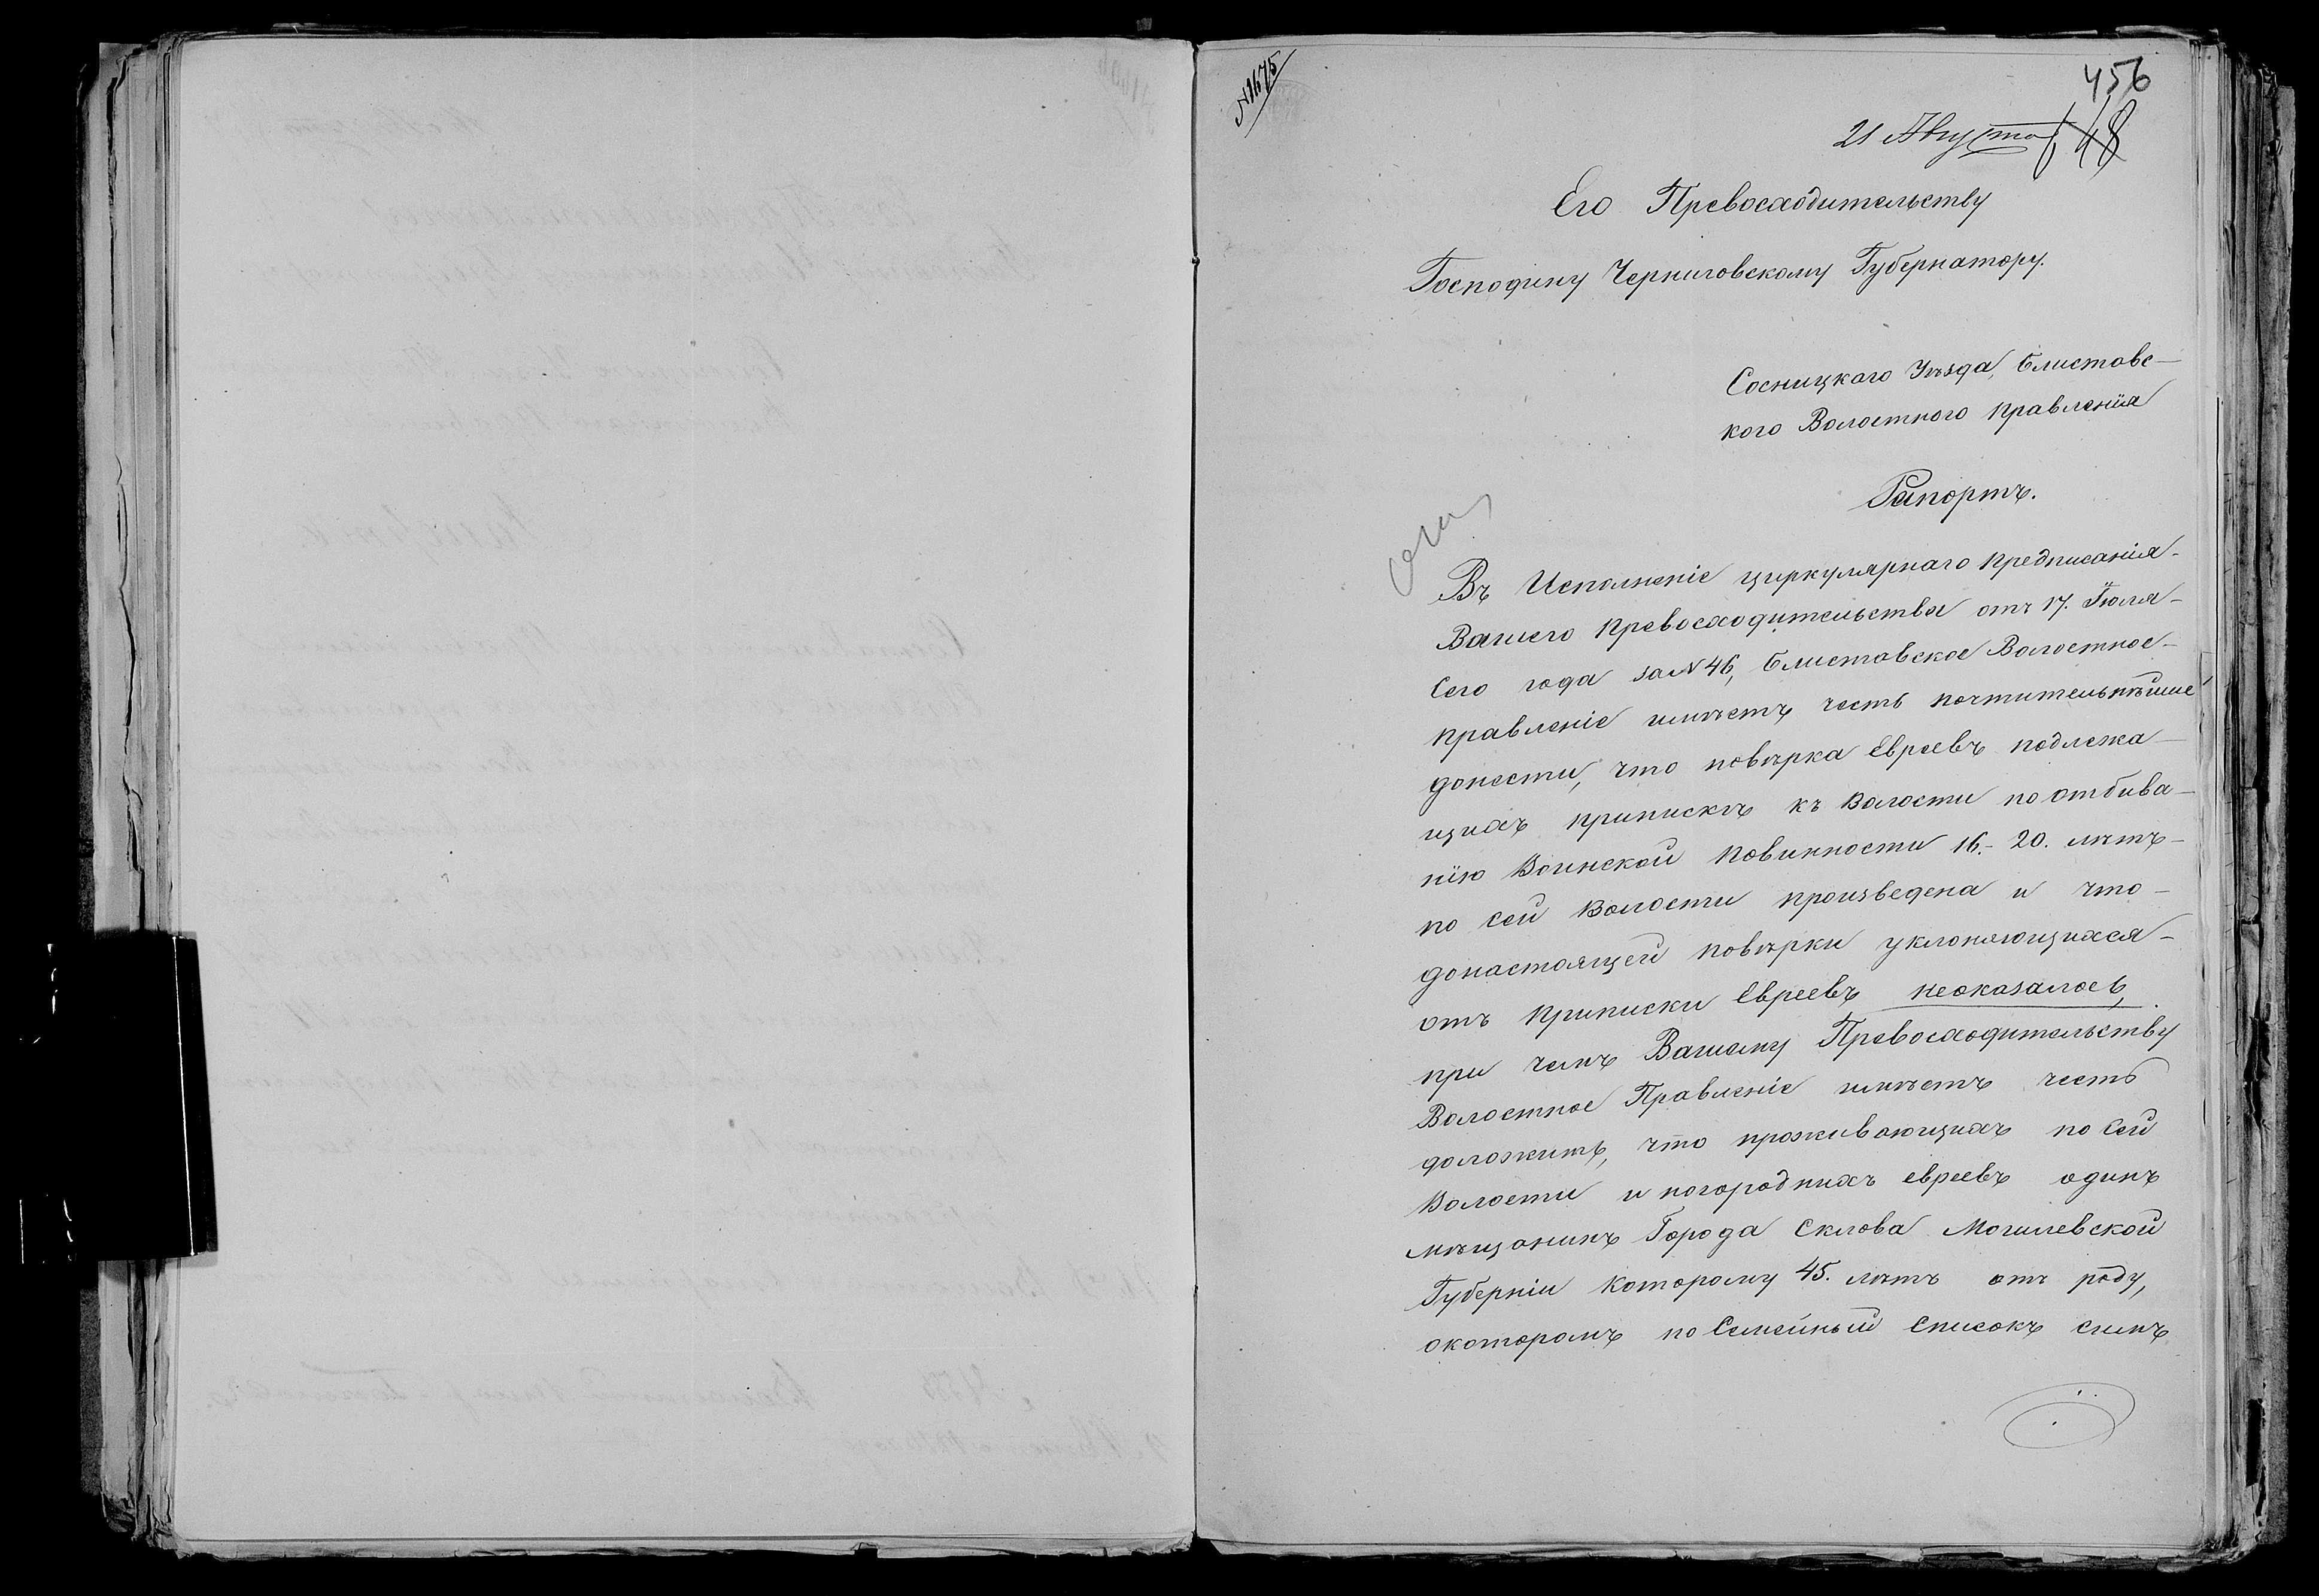 №1675
456
21 Августа 48
Его Превосходительству
Господину Черниговскому Губернатору.
Сосницкаго Уѣзда, Блистовс-
кого Волостного Правленія
Рапортъ.
Въ Исполненіе циркулярнаго предписанія
Вашего Превосходительства отъ 17. Іюля
сего года за №46, Блистовское Волостное
правленіе имѣетъ честь почтительнѣйше
донести, что повѣрка Евреевъ подлежа-
щихъ припискѣ къ Волости по отбыва-
нію Воинской Повинности 16.-20. лѣтъ
по сей Волости произведена и что
донастоящей повѣрки уклоняющихся
отъ приписки Евреевъ неоказалось,
при чемъ Вашему Превосходительству
Волостное Правленіе имѣетъ честь
доложить, что проживающихъ по сей
Волости иногороднихъ евреевъ одинъ
мѣщанинъ Города Склова Могилевской
Губерніи которому 45. лѣтъ отъ роду,
окоторомъ по Семейный Списокъ симъ